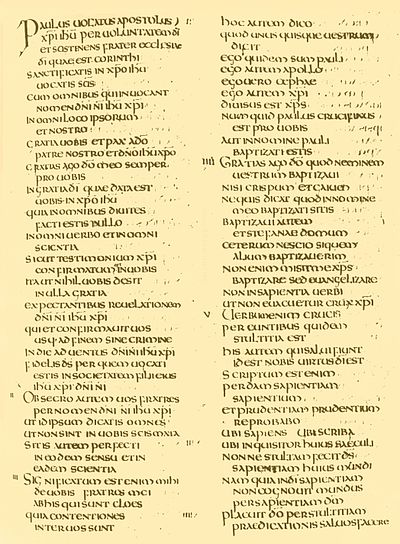 PAULUS UOCATUS APOSTOLUS
XPI IHU PER UOLUNTATEM DI
ET SOSTINENS FRATER ECCLESIAE
DI QUAE EST CORINTHI
SANCTIFICATIS IN XPO IHU
UOCATIS SCIS
CUM OMNIBUS QUI INUOCANT
NOMEN DNI NI IHU XPI
IN OMNI LOCO IPSORUM
ET NOSTRO
GRATIA UOBIS ET PAX A DO
PATRE NOSTRO ET DNO IHU XPO
GRATIAS AGO DO MEO SEMPER
PRO UOBIS
IN GRATIA DI QUAE DATA EST
UOBIS IN XPO IHU
QUIA IN OMNIBUS DIUITES
FACTI ESTIS IN ILLO
IN OMNI UERBO ET IN OMNI
SCIENTIA
SICUT TESTIMONIUM XPI
CONFIRMATUM IN UOBIS
ITA UT NIHIL UOBIS DESIT
IN ULLA GRATIA
EXPECTANTIBUS REUELATIONEM
DNI NI IHU XPI
QUI ET CONFIRMAUIT UOS
USQ AD FINEM SINE CRIMINE
IN DIE ADUENTUS DNI NI IHU XPI
FIDELIS DS PER QUEM UOCATI
ESTIS IN SOCIETATEM FILII EIUS
IHU XPI DNI NI
II OBSECRO AUTEM UOS FRATRES
PER NOMEN DNI NI IHU XPI
UT IDIPSUM DICATIS OMNES
UT NON SINT IN UOBIS SCISMATA
SITIS AUTEM PERFECTI
IN EODEM SENSU ET IN
EADEM SCIENTIA
III SIGNIFICATUM EST ENIM MIHI
DE UOBIS FRATRES MEI
AB HIS QUI SUNT CLOES
QUIA CONTENTIONES
INTER UOS SUNT
HOC AUTEM DICO
QUOD UNUS QUISQUE UESTRUM
DICIT
EGO QUIDEM SUM PAULI
EGO AUTEM APOLLO
EGO UERO CEPHAE
EGO AUTEM XPI
DIUISUS EST XPS
NUM QUID PAULUS CRUCIFIXUS
EST PRO UOBIS
AUT IN NOMINE PAULI
BAPTIZATI ESTIS
IIII GRATIAS AGO DO QUOD NEMINEM
UESTRUM BAPTIZAUI
NISI CRISPUM ET GAIUM
NE QUIS DICAT QUOD IN NOMINE
MEO BAPTIZATI ESTIS
BAPTIZAUI AUTEM
ET STEFANAE DOMUM
CETERUM NESCIO SI QUEM
ALIUM BAPTIZAUERIM
NON ENIM MISIT ME XPS
BAPTIZARE SED EUANGELIZARE
NON IN SAPIENTIA UERBI
UT NON EUACUETUR CRUX XPI
V UERBUM ENIM CRUCIS
PEREUNTIBUS QUIDEM
STULTITIA EST
HIS AUTEM QUI SALUI FIUNT
ID EST NOBIS UIRTUS DI EST
SCRIPTUM EST ENIM
PERDAM SAPIENTIAM
SAPIENTIUM
ET PRUDENTIAM PRUDENTIUM
REPROBABO
UBI SAPIENS UBI SCRIBA
UBI INQUISITOR HUIUS SAECULI
NONNE STULTAM FECIT DS
SAPIENTIAM HUIUS MUNDI
NAM QUIA IN DI SAPIENTIA
NON COGNOUIT MUNDUS
PER SAPIENTIAM DM
PLACUIT DO PER STULTITIAM
PRAEDICATIONIS SALUOS FACERE